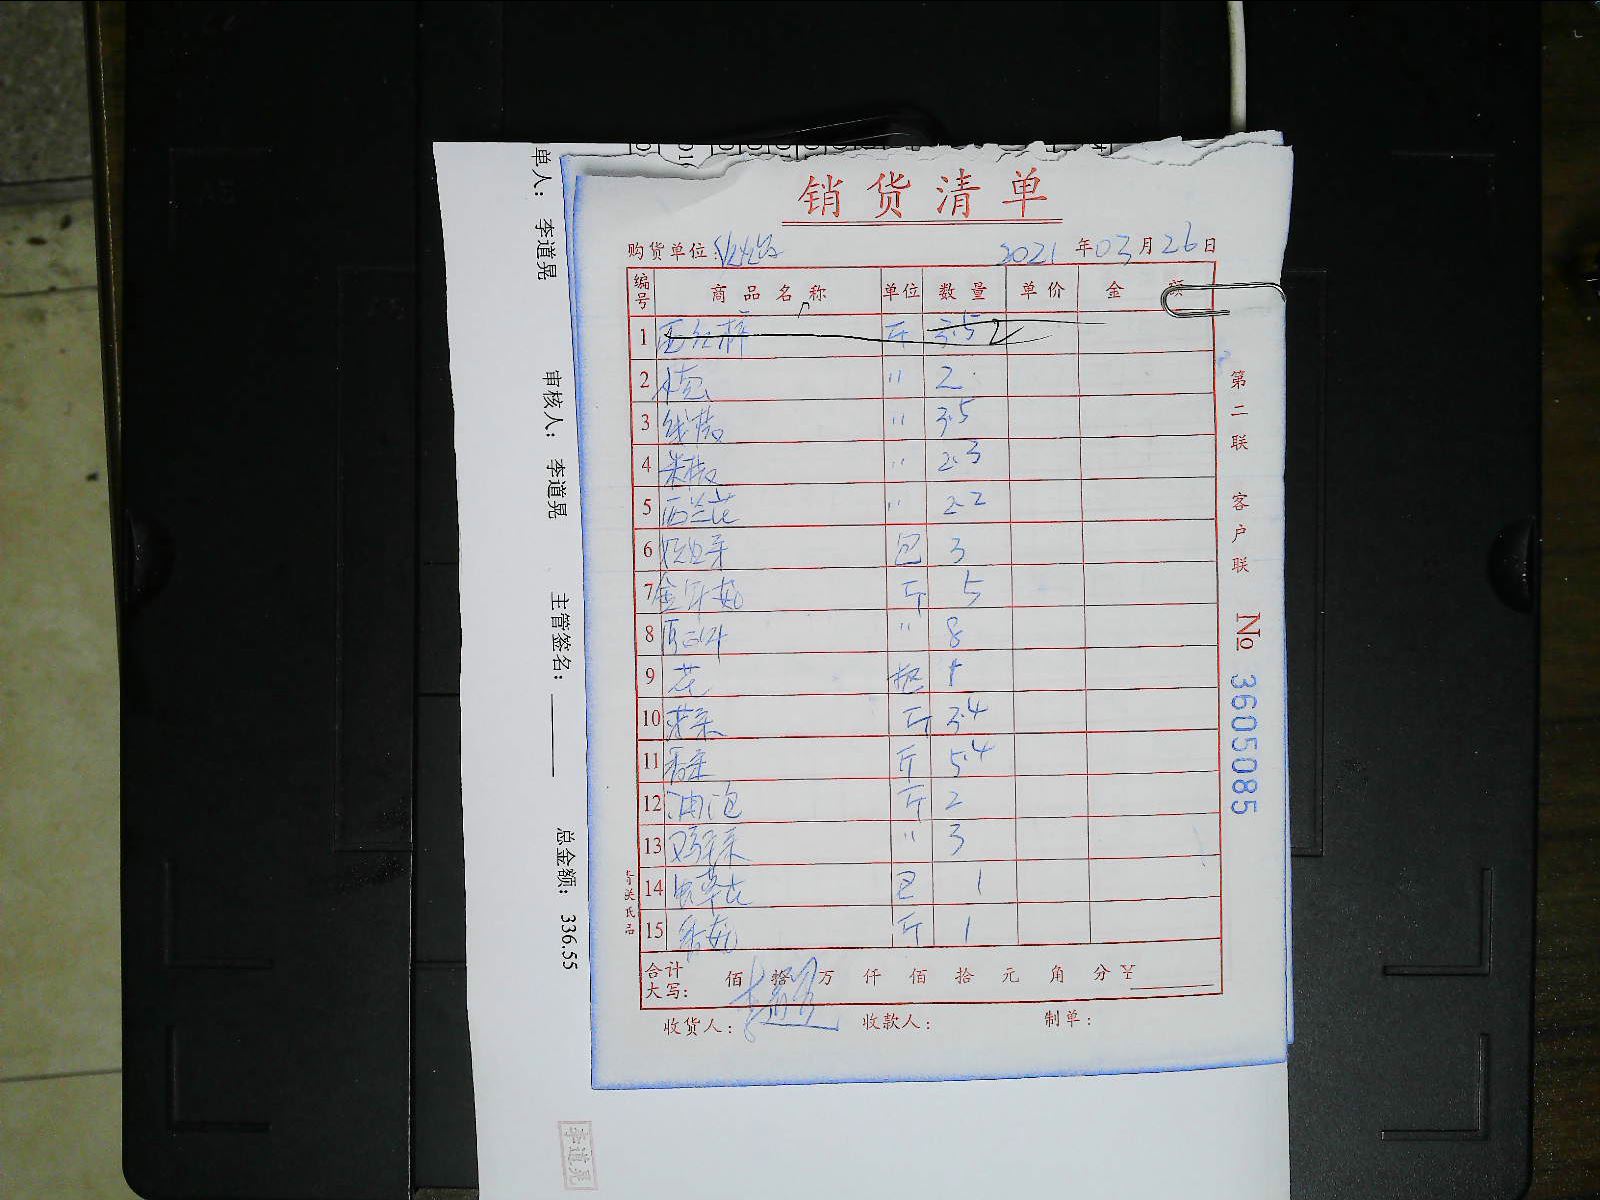 销货清单
购货单位:
2021 年 03 月 26 日
编号 商品名称 单位 数量 单价 金 额
1 西红柿 斤 3.5 2
2 〃 2
3 线椒 〃 3.5
4 米椒 〃 2.3
5 西兰花 〃 2.2
6 包 3
7 金针菇 斤 5
8 〃 8
9 花 1
10 芽菜 斤 3.4
11 香菜 斤 5.4
12 油泡 斤 2
13 〃 3
14 虫草花 包 1
15 斤 1
合计大写: 佰 拾 万 仟 佰 拾 元 角 分 ¥
收货人: 收款人: 制单:
第二联 客户联
No 3605085
单人: 李道晃 审核人: 李道晃 主管签名: 总金额: 336.55
李道晃